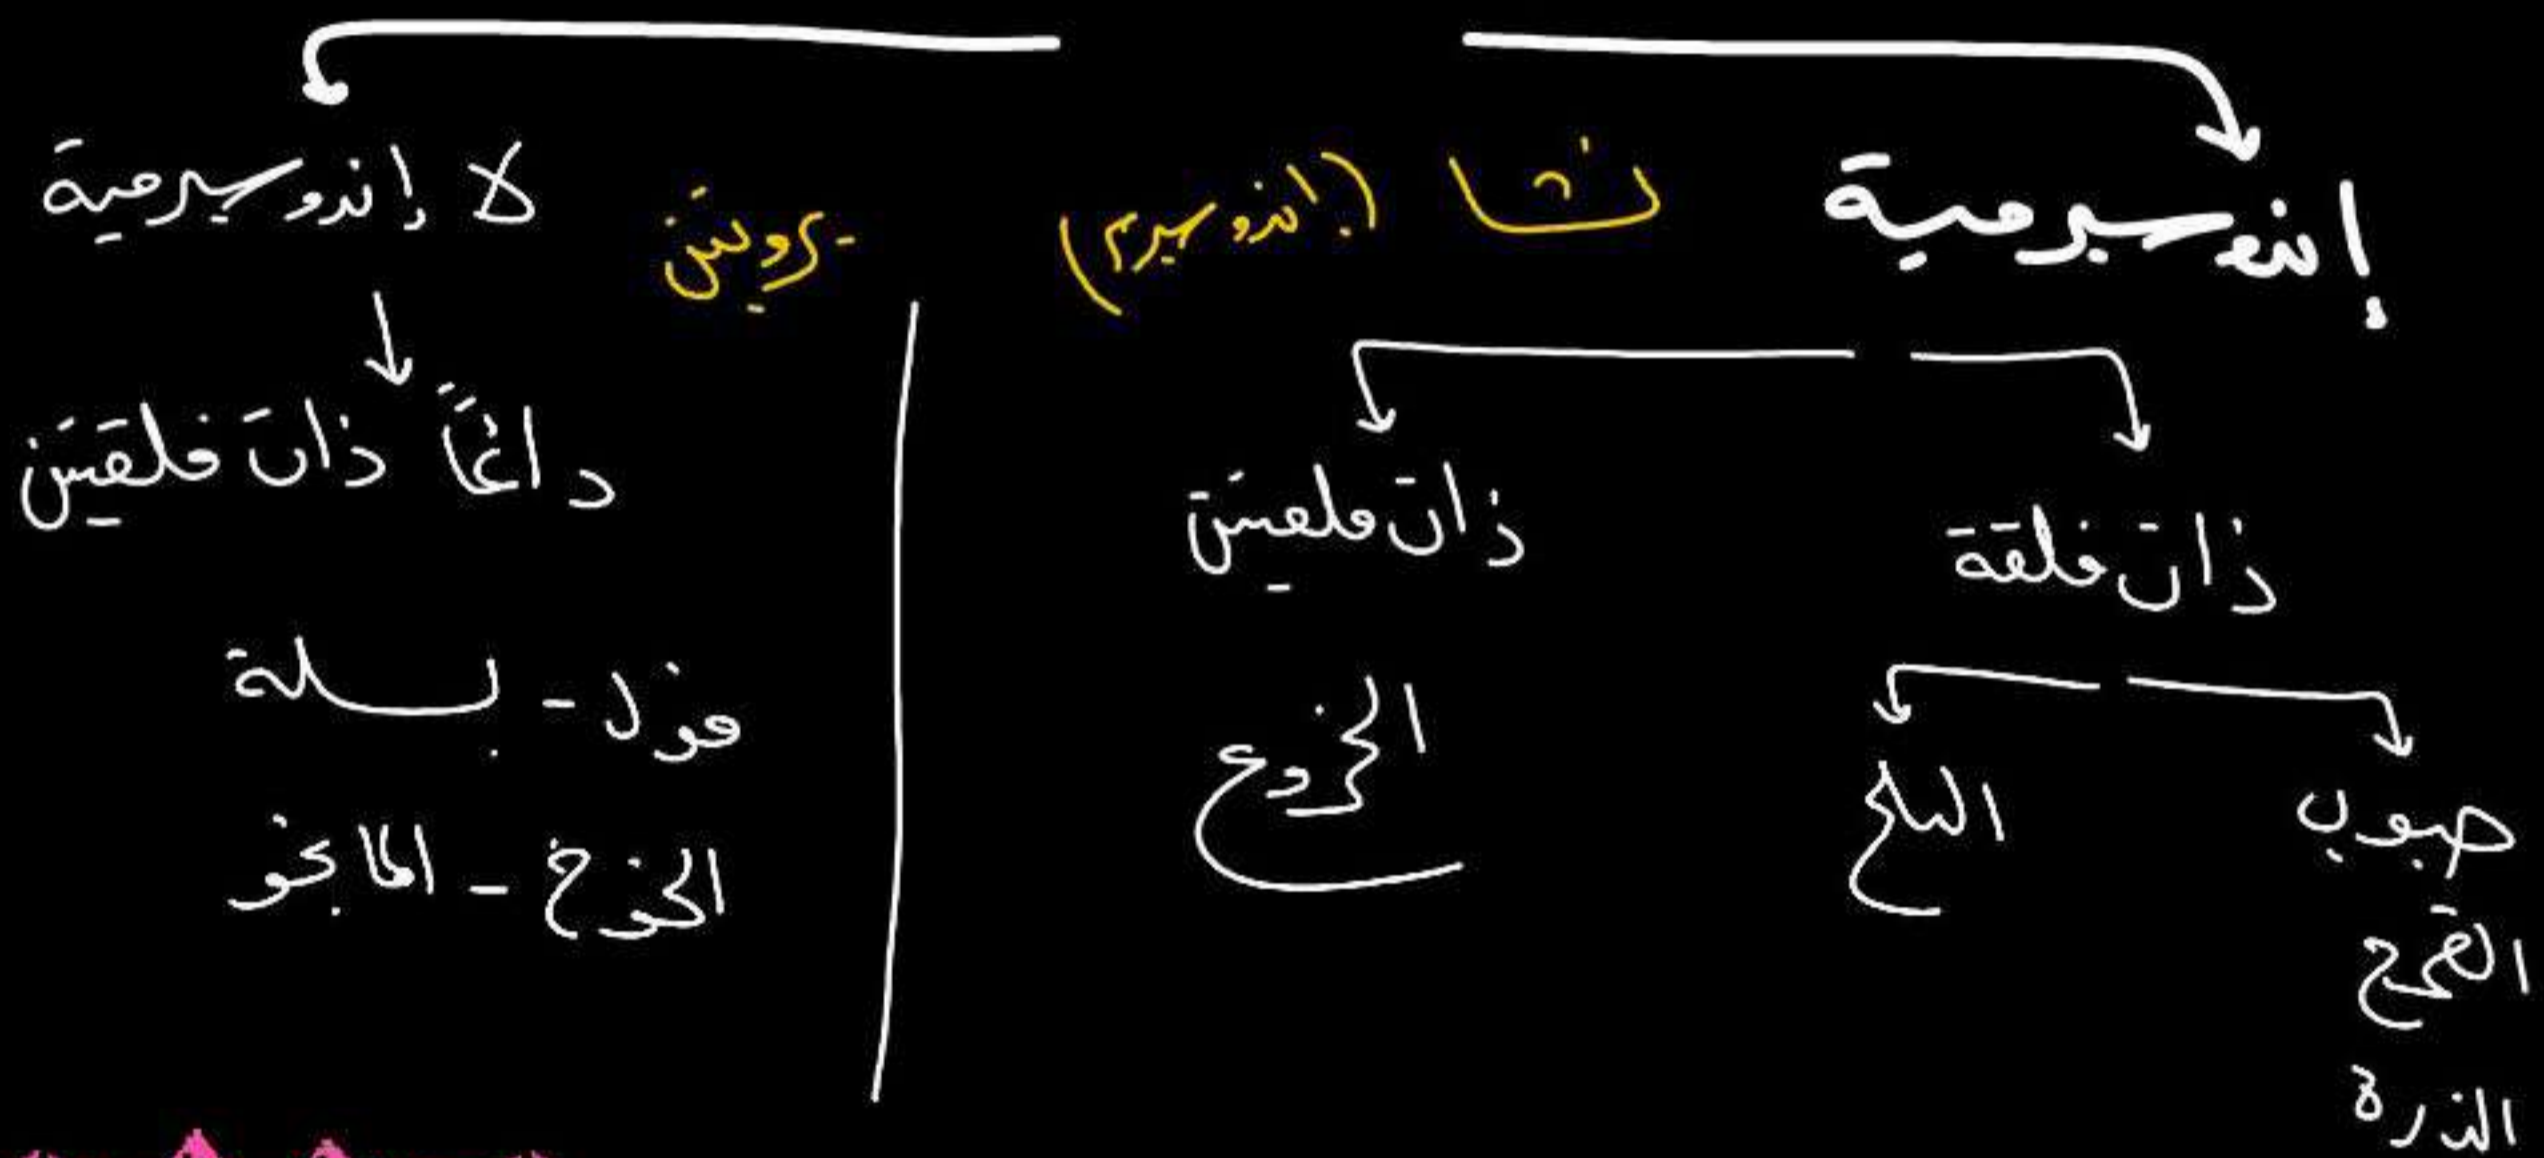 إندوسبرمية
لا إندوسبرمية
نشا (إندوسبرم)
بروتين
ذات فلقة
ذات فلقتين
دائماً ذات فلقتين
حبوب
القمح
الذرة
البلح
الخروع
فول - بسلة
الخوخ - المانجو